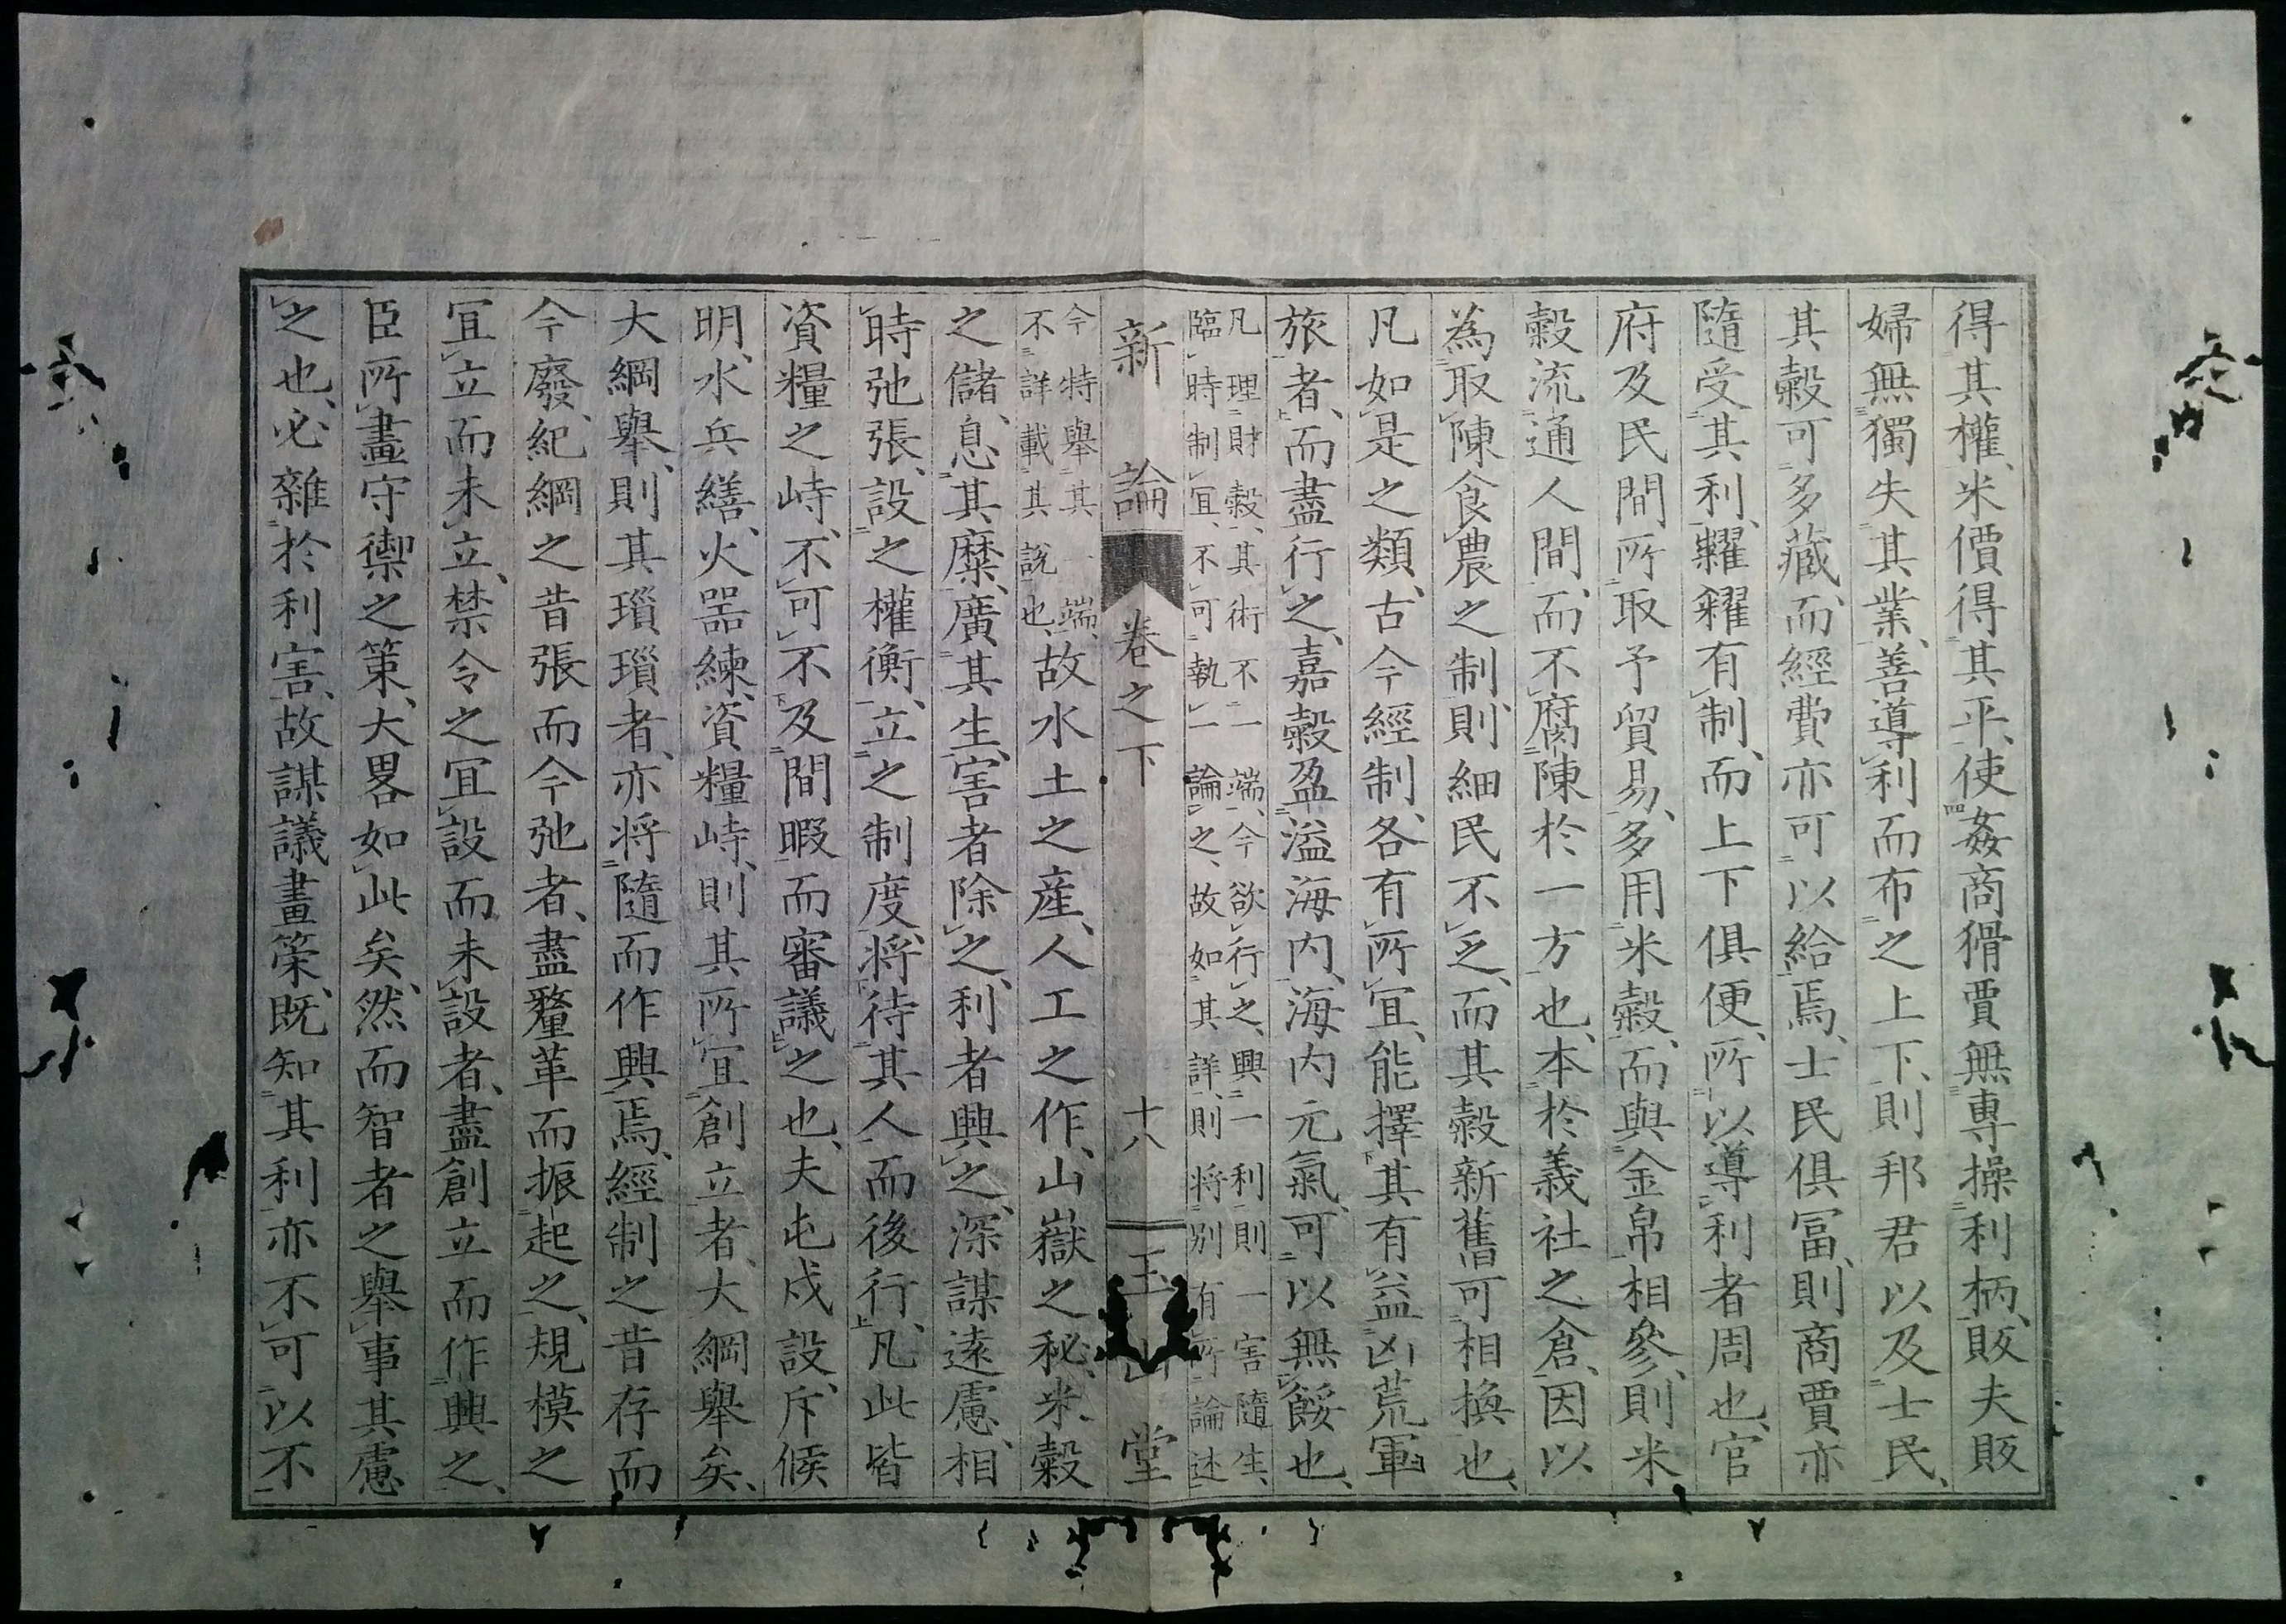 得其權、米價得其平、使姦商猾賈無專操利柄、販夫販
婦無獨失其業、善導利而布之上下、則邦君以及士民、
其穀可多藏、而經費亦可以給焉、士民俱冨、則商賈亦
隨受其利、糶糴有制、而上下俱便、所以導利者周也、官
府及民間所取予貿易、多用米穀、而與金帛相參、則米
穀流通人間、而不腐陳於一方也、本於義社之倉、因以
為取陳食農之制、則細民不乏、而其穀新舊可相換也、
凡如是之類、古今經制、各有所宜、能擇其有益凶荒軍
旅者、而盡行之、嘉穀盈溢海内、海内元氣、可以無餒也、
凡理財穀、其術不一端、今欲行之、興一利則一害隨生、
臨時制宜、不可執一論之、故如其詳、則將別有所論述
新論 卷之下 十八 玉山堂
今特舉其一端、
不詳載其説也、
故水土之產、人工之作、山嶽之秘、米穀
之儲、息其糜、廣其生、害者除之、利者興之、深謀遠慮、相
時弛張、設之權衡、立之制度、將待其人而後行、凡此皆
資糧之峙、不可不及間暇而審議之也、夫屯戍設、斥候
明、水兵繕、火器練、資糧峙、則其所宜創立者、大綱舉矣、
大綱舉、則其瑣瑣者、亦將隨而作興焉、經制之昔存而
今廢、紀綱之昔張而今弛者、盡釐革而振起之、規模之
宜立而未立、禁令之宜設而未設者、盡創立而作興之、
臣所畫守禦之策、大畧如此矣、然而智者之舉事其慮
之也、必雜於利害、故謀議畫策、既知其利亦不可以不